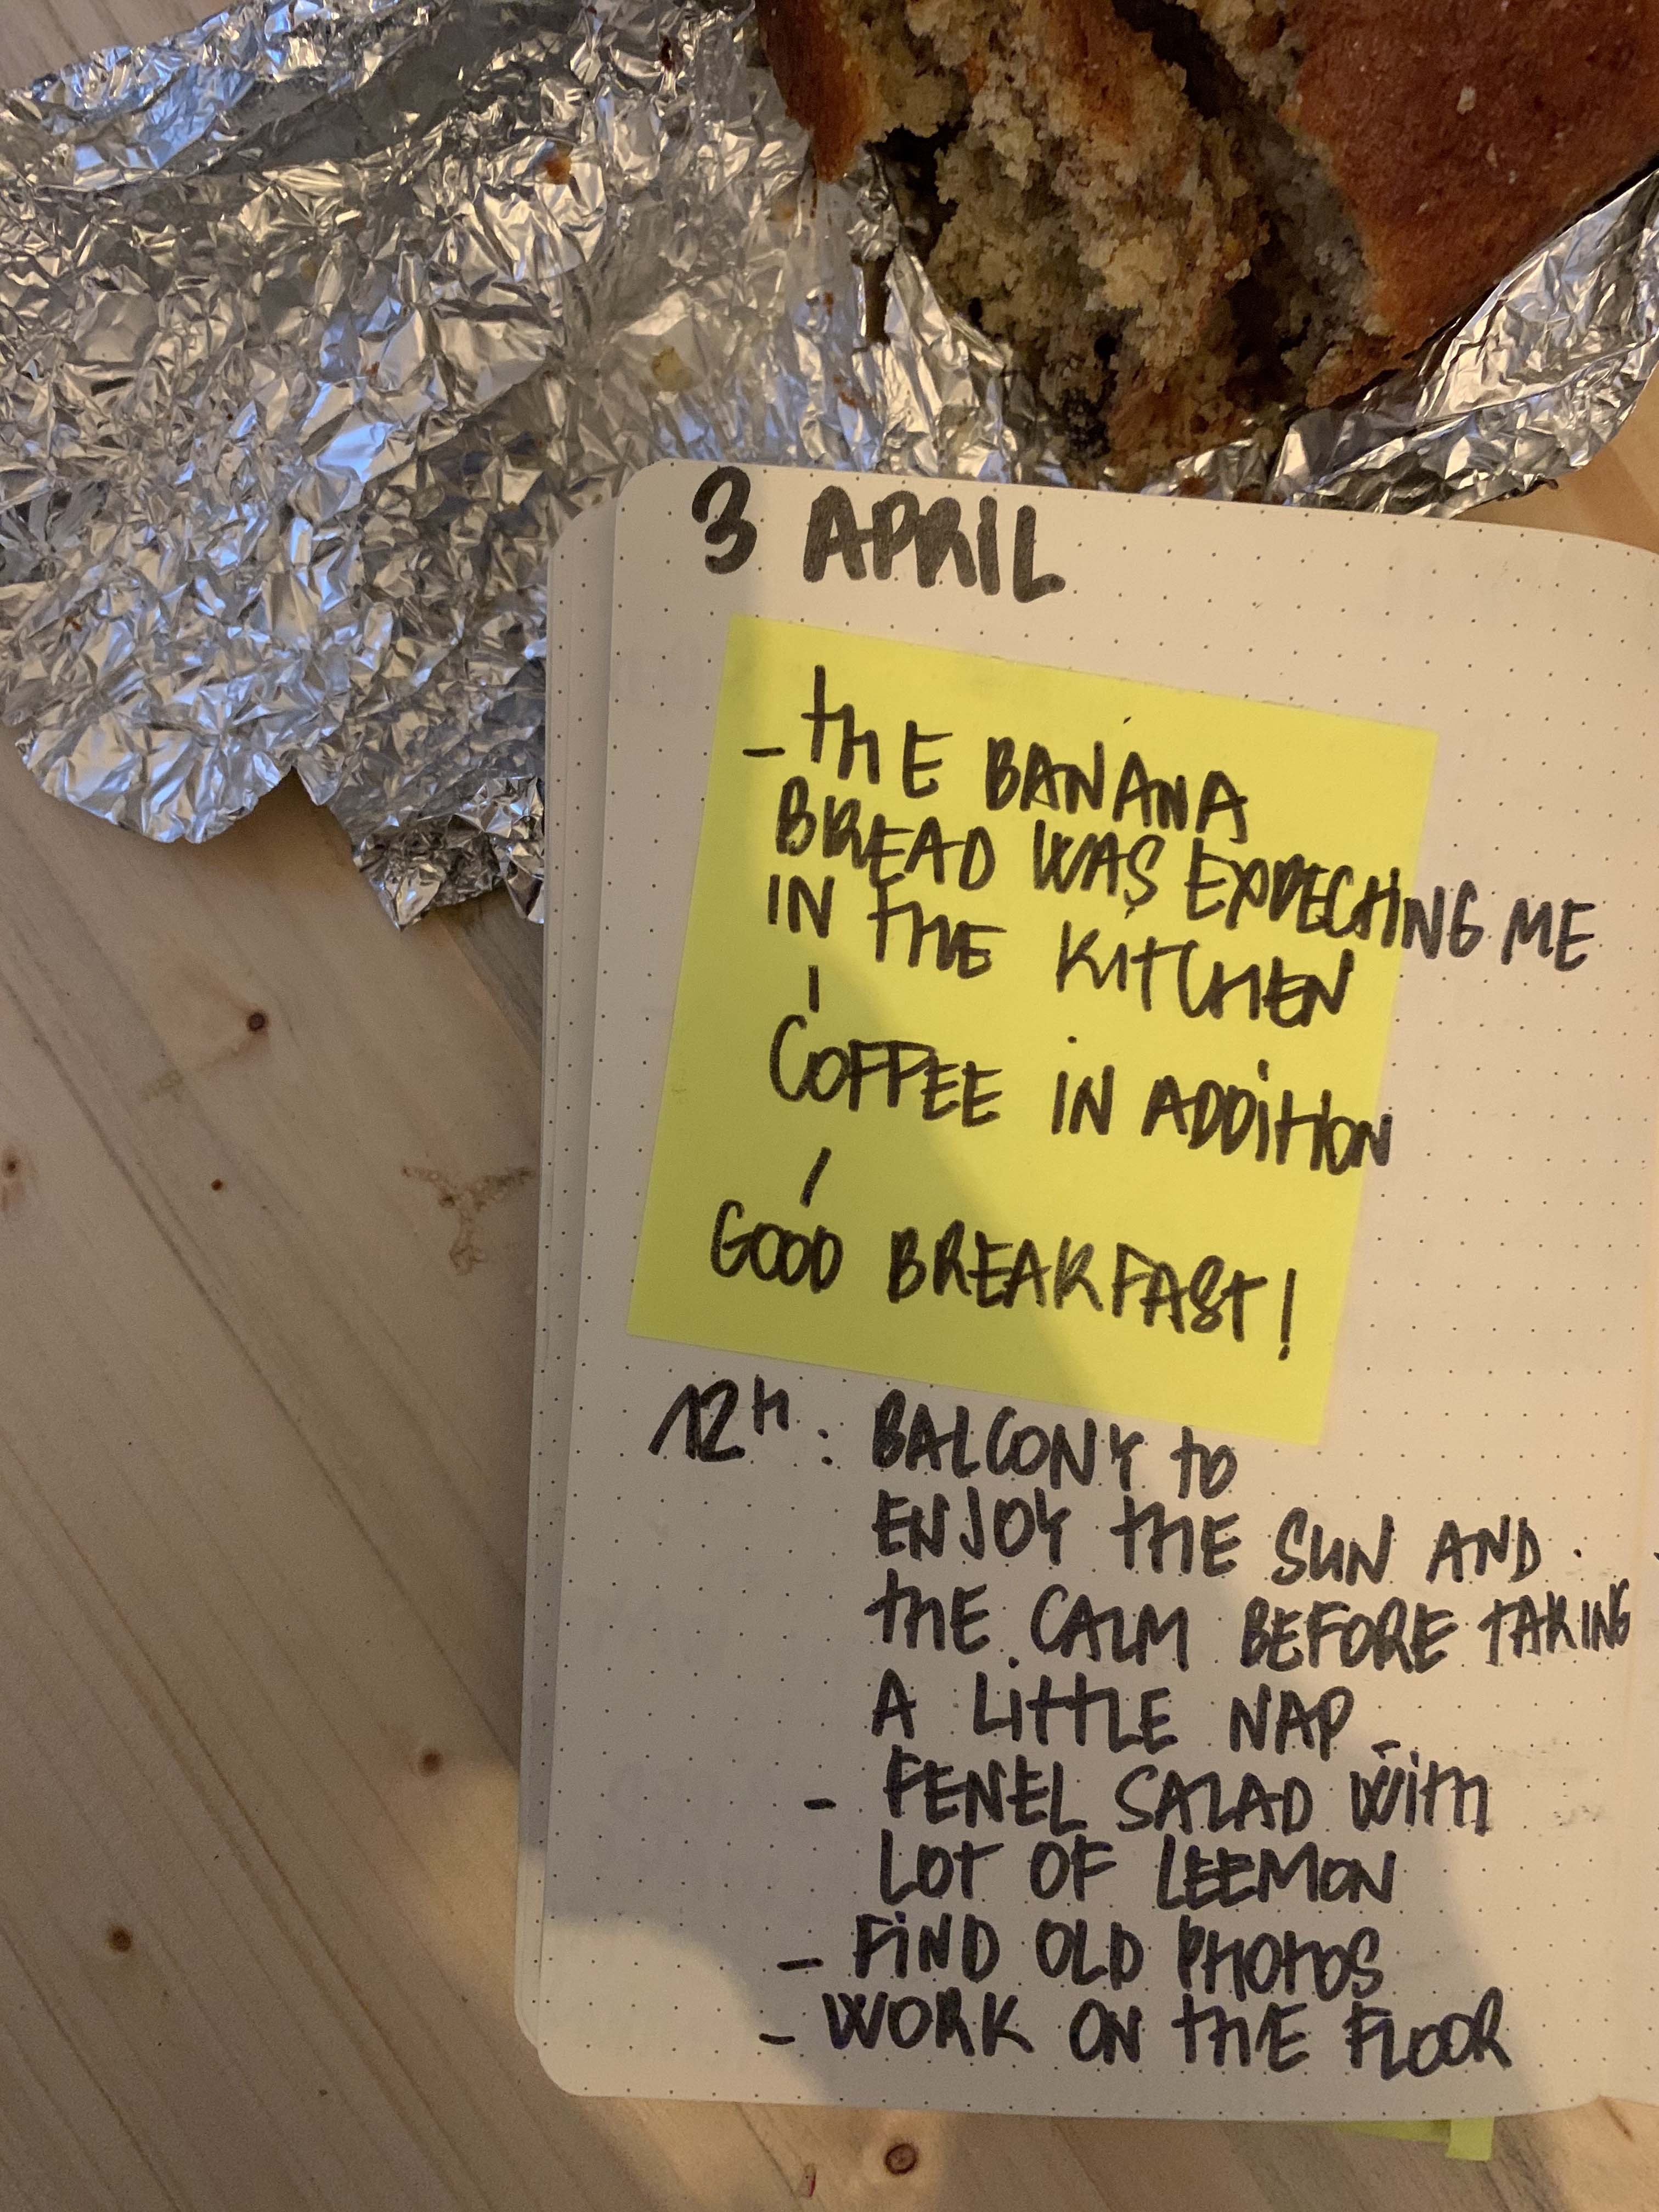 3 APRIL
- THE BANANA
BREAD WAS EXPECTING ME
IN THE KITCHEN
COFFEE IN ADDITION
GOOD BREAKFAST!
12H: BALCONY TO
ENJOY THE SUN AND
THE CALM BEFORE TAKING
A LITTLE NAP_
- FENEL SALAD WITH
LOT OF LEEMON
- FIND OLD PHOTOS
- WORK ON THE FLOOR